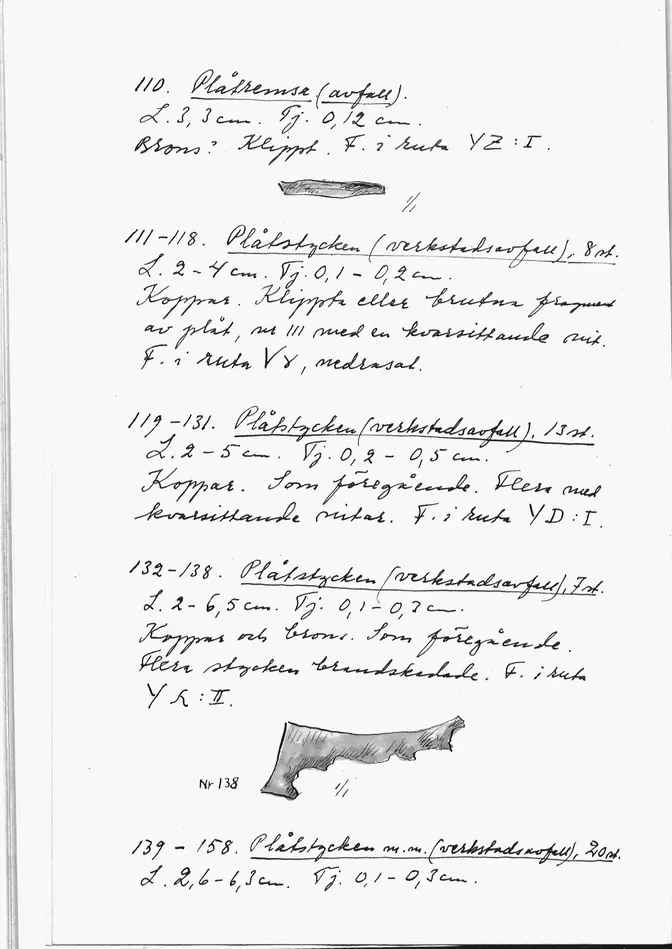 110. Plåtremsa (avfall).
L. 3,3 cm. Tj. 0,12 cm.
Brons? Klippt. F. i ruta YZ : I.
1/1
111-118. Plåtstycken (verkstadsavfall), 8 st.
L. 2-4 cm. Tj. 0,1 - 0,2 cm.
Koppar. Klippta eller brutna fragment
av plåt, nr 111 med en kvarsittande nit.
F. i ruta VY, nedrasat.
119-131. Plåtstycken (verkstadsavfall), 13 st.
L. 2-5 cm. Tj. 0,2 - 0,5 cm.
Koppar. Som föregående. Flera med
kvarsittande nitar. F. i ruta YD : I.
132-138. Plåtstycken (verkstadsavfall), 7 st.
L. 2-6,5 cm. Tj. 0,1-0,3 cm.
Koppar och brons. Som föregående.
Flera stycken brandskadade. F. i ruta
Y : II.
Nr 138 1/1
139 - 158. Plåtstycken m.m. (verkstadsavfall), 20 st.
L. 2,6-6,3 cm. Tj. 0,1-0,3 cm.